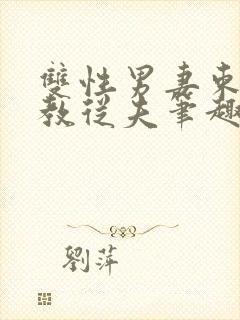 雙性男妻束
教從夫筆趣
劉萍